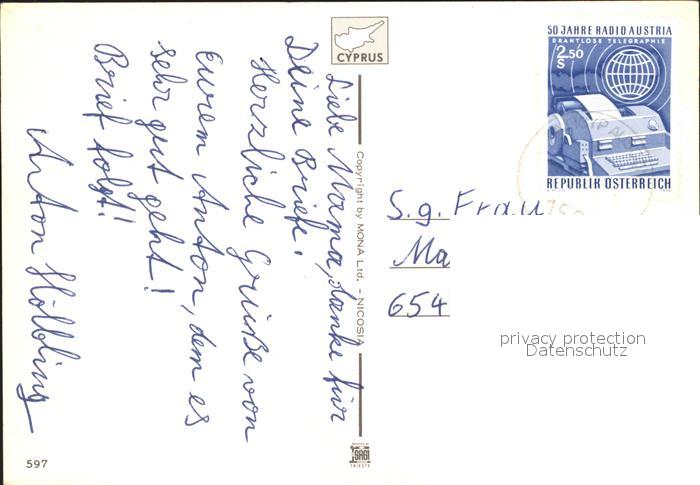 Liebe Mama, danke für
Deine Briefe.
Herzliche Grüße von
Eurem Anton, dem es
sehr gut geht!
Brief folgt!
Anton
CYPRUS
Copyright by MONA Ltd. - NICOSIA
PRINTED BY
SAGI
TRIESTE
597
50 JAHRE RADIO AUSTRIA
DRAHTLOSE TELEGRAPHIE
2.50
S
REPUBLIK ÖSTERREICH
S.g. Frau
Ma
654
privacy protection
Datenschutz